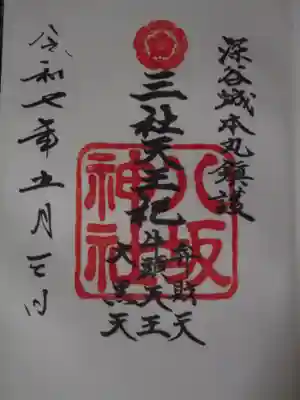 深谷城本丸鎮護
三社天王記
弁財天
牛頭天王
大黒天
八坂神社
令和七年五月三日